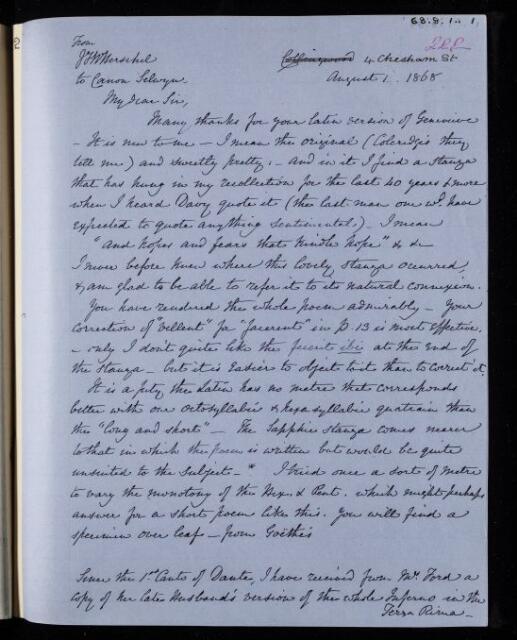 68.8.1.. 1
From
JFWHerschel
to Canon Selwyn
Collingwood 4. Chesham St
August 1. 1868
My dear Sir,
Many thanks for your latin version of Genevieve
- It is new to me - I mean the original (Coleridge's they
tell me) and sweetly pretty. - and in it I find a stanza
that has hung in my recollection for the last 40 years & more
when I heard Davy quote it (the last man one wd. have
expected to quote anything sentimental,) - I mean
"And hopes and fears that kindle hope" & &c
I never before knew where this lovely stanza occurred,
& am glad to be able to refer it to its natural connexion.
You have rendered the whole poem admirably - Your
correction of "vellent" for "facerent" in p. 13 is most effective.
- only I don't quite like the fuerit ibi at the end of
the stanza - but it is easier to object to it than to correct it.
It is a pity the Latin has no metre that corresponds
better with our octosyllabic & hexasyllabic quatrain than
the "long and short" - The Sapphic stanza comes nearer
to that in which the poem is written but would be quite
unsuited to the subject - * I tried once a sort of metre
to vary the monotony of the Hex. & Pent. which might perhaps
answer for a short poem like this. You will find a
specimen over leaf - from Goëthe's
Since the 1st. Canto of Dante, I have received from Mrs. Ford a
copy of her late Husband's version of the whole Inferno in the
Terza Rima -